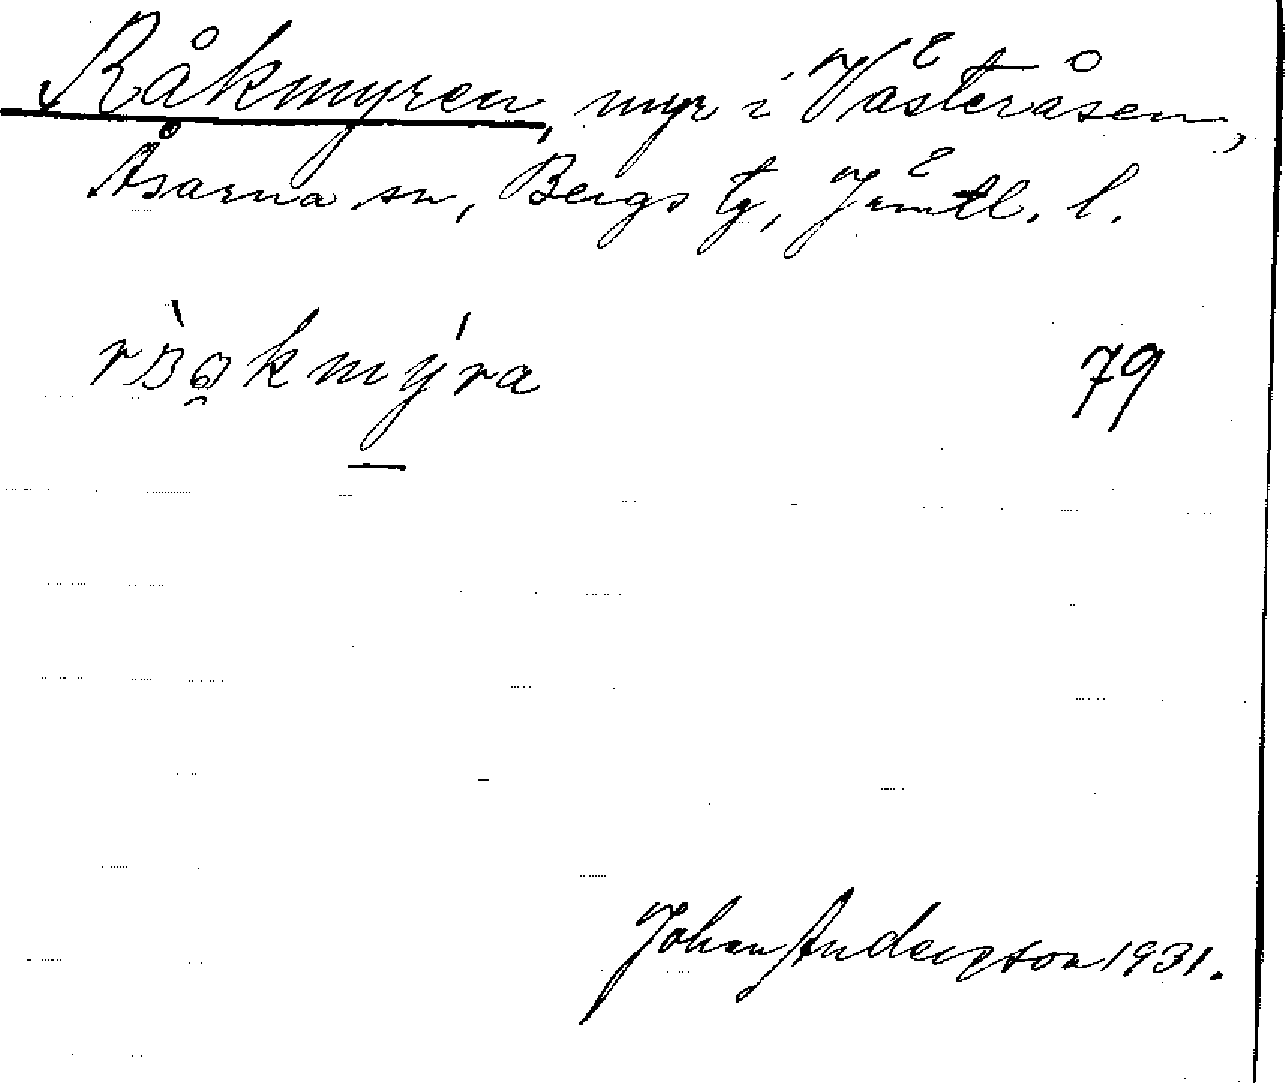 Råkmyren, myr i Västeråsen,
Åsarna sn, Bergs tg, Jämtl. l.
79
Johan Anderzson 1931.